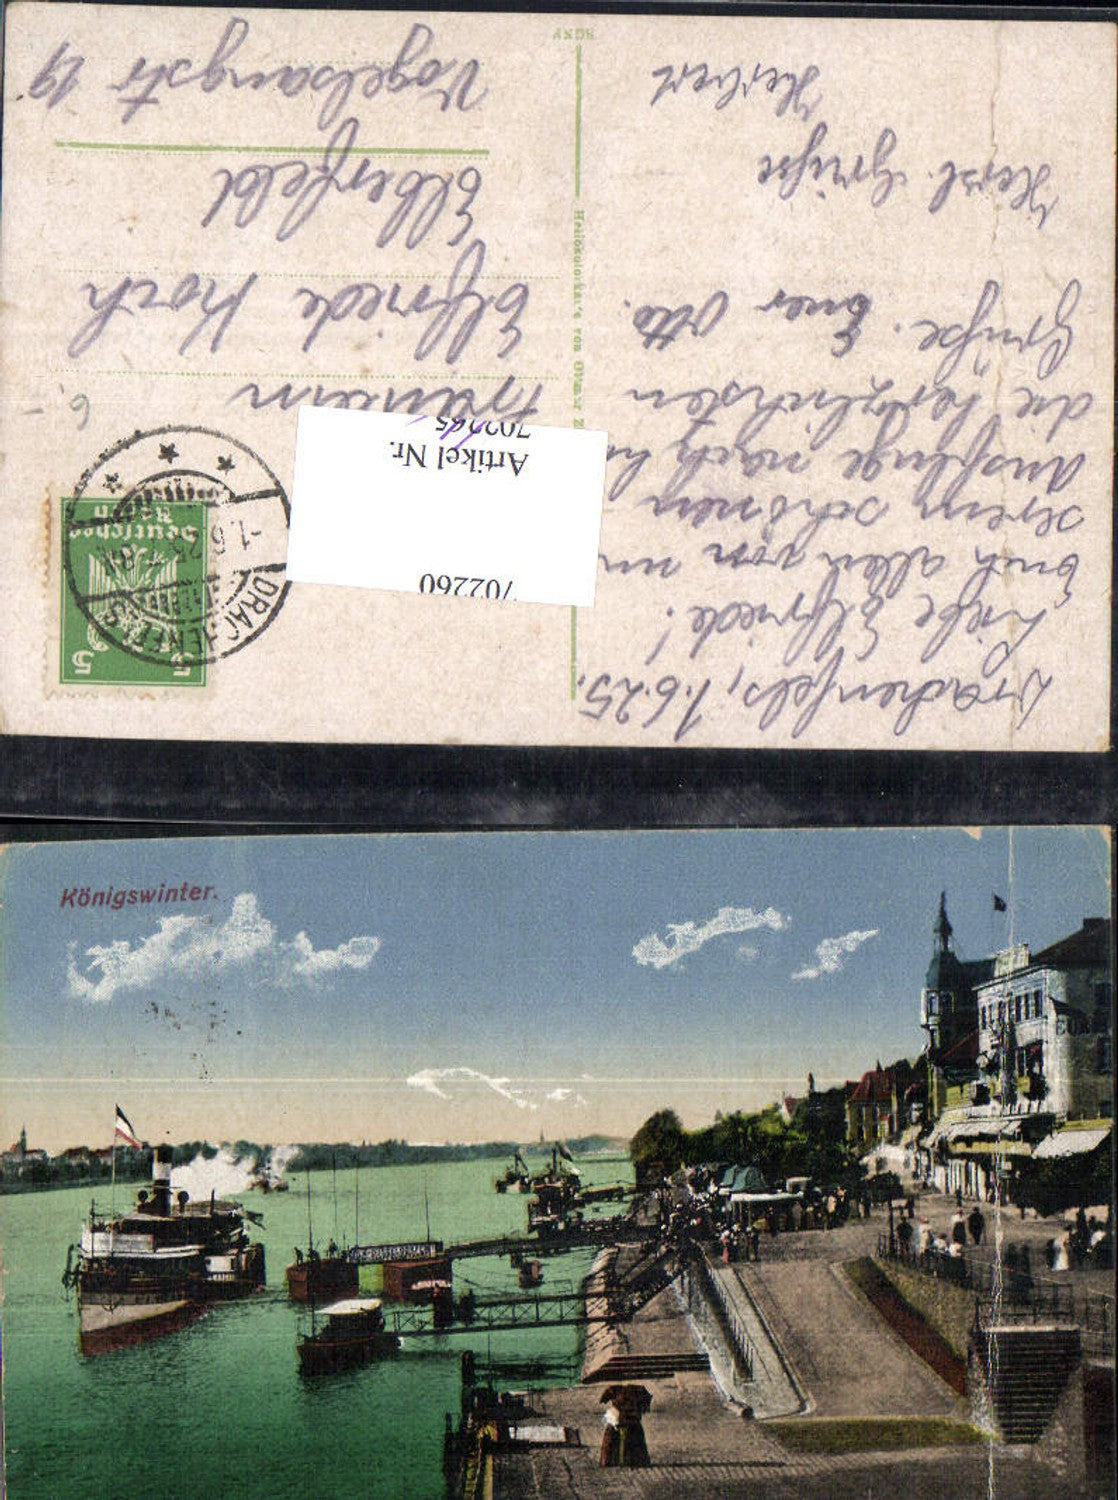 Drachenfels, 1.6.25.
Liebe Elfriede!
Euch allen von
serem schönen
Ausfluge noch
die herzlichsten
Grüße. Euer Otto.
Herzl. Grüße
Herbert
Heliokolorkarte von Ottmar Z
Fräulein
Elfriede Koch
Elberfeld
Vogelsangstr 29
6,-
Deutsches
Reich
5
5
DRACHENFELS
-1.6.25
Artikel Nr.
702265
702260
Königswinter.